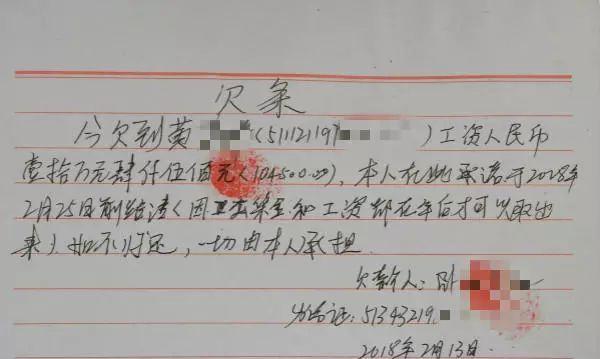 欠条
今欠到黄 (511121197 )工资人民币
壹拾万元肆仟伍佰元(104500.00), 本人在此承诺于2018年
2月25日前结清(因 和工资都在年后才可以取出
来). 如不归还, 一切由本人承担.
欠款人: 卧
身份证: 51343219
2018年2月13日.